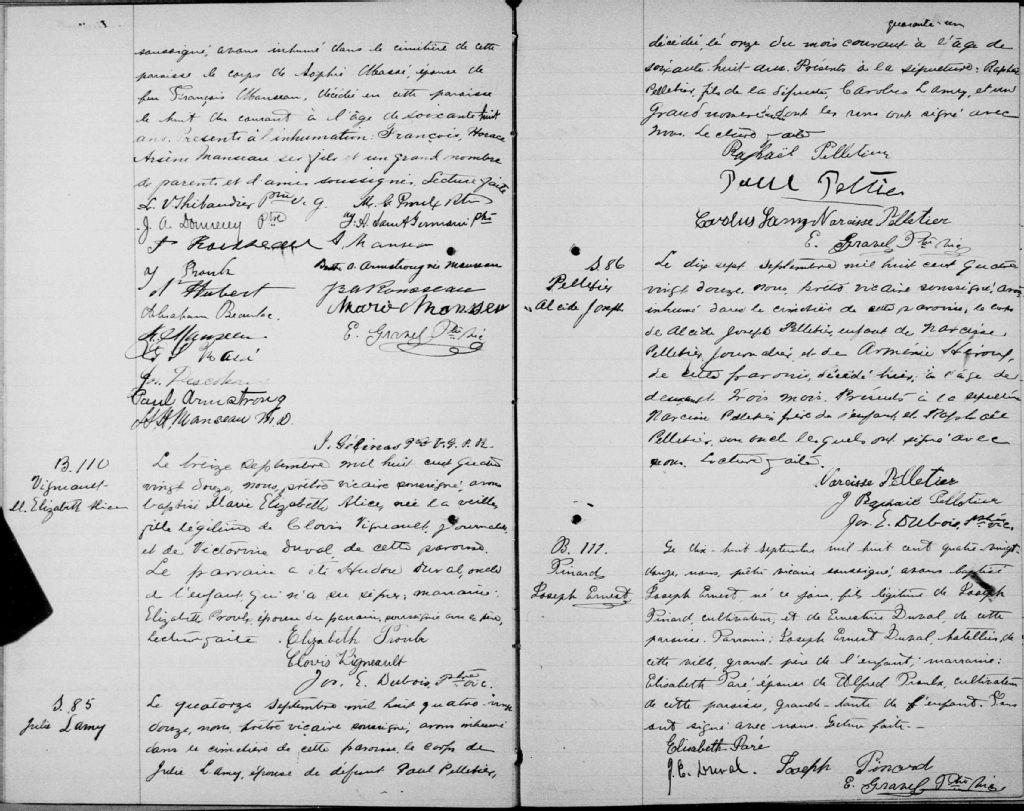 soussigné, avons inhumé dans le cimetière de cette
paroisse le corps de Sophie Massé, épouse de
feu François Manseau, décédée en cette paroisse
le huit du courant à l'âge de soixante huit
ans. Présents à l'inhumation: François, Horace
Arsène Manseau ses fils et un grand nombre
de parents et d'amis soussignés. Lecture faite
L. V. Thibaudier ptre V. G. M. C. Proulx
J. A. ptre J. H. ptre
Rousseau S. Manseau
J Proulx A. Armstrong née Manseau
Hubert Rousseau
Abraham Marie Manseau
A. Manseau E. Gravel Ptre Vic
Paré
Jos.
Paul Armstrong
Manseau M.D.
I. Gélinas V. G.
B. 110
Vigneault
M. Elizabeth Alice
Le treize septembre mil huit cent quatre
vingt douze, nous, prêtre vicaire soussigné, avons
baptisé Marie Elizabeth Alice, née la veille,
fille légitime de Clovis Vigneault, journalier
et de Victorine Duval, de cette paroisse.
Le parrain a été Duval, oncle
de l'enfant, qui n'a su signer; marraine:
Elizabeth Proulx, épouse du parrain, soussignée avec le père,
Lecture faite Elizabeth Proulx
Clovis Vigneault
Jos. E. Dubois, Ptre vic.
S. 85
Julie Lamy
Le quatorze septembre mil huit quatre-vingt
douze, nous, prêtre vicaire soussigné, avons inhumé
dans le cimetière de cette paroisse, le corps de
Julie Lamy, épouse de défunt Paul Pelletier,
quarante-un
décédée le onze du mois courant à l'âge de
soixante-huit ans. Présents à la sépulture: Raphaël
Pelletier, fils de la défunte, Carolus Lamy, et un
Grand nombre dont les uns ont signé avec
nous. Lecture faite
Raphaël Pelletier
Paul Peltier
Carolus Lamy Narcisse Pelletier
E. Gravel Ptre Vic
S. 86
Pelletier
Alcide Joseph
Le dix sept septembre mil huit cent quatre
vingt douze, nous, prêtre vicaire soussigné, avons
inhumé dans le cimetière de cette paroisse, le corps
de Alcide Joseph Pelletier, enfant de Narcisse
Pelletier, journalier, et de Arménie Héroux,
de cette paroisse, décédé hier, à l'âge de
trois mois. Présents à la sépulture
Narcisse Pelletier père de l'enfant, et Raphaël
Pelletier, son oncle lesquels ont signé avec
nous. Lecture faite.
Narcisse Pelletier
J Raphaël Pelletier
Jos. E. Dubois, Ptre vic.
B. 111.
Pinard
Joseph Ernest
Le dix-huit septembre mil huit cent quatre-vingt-
douze, nous, prêtre vicaire soussigné, avons baptisé
Joseph Ernest né ce jour, fils légitime de Joseph
Pinard, cultivateur, et de Ernestine Duval, de cette
paroisse. Parrain: Joseph Ernest Duval, hôtellier, de
cette ville, grand père de l'enfant; marraine:
Elisabeth Paré, épouse de Alfred Proulx, cultivateur
de cette paroisse, grande-tante de l'enfant.
ont signé avec nous. Lecture faite-
Elisabeth Paré
J. E. Duval. Joseph Pinard
E. Gravel Ptre Vic